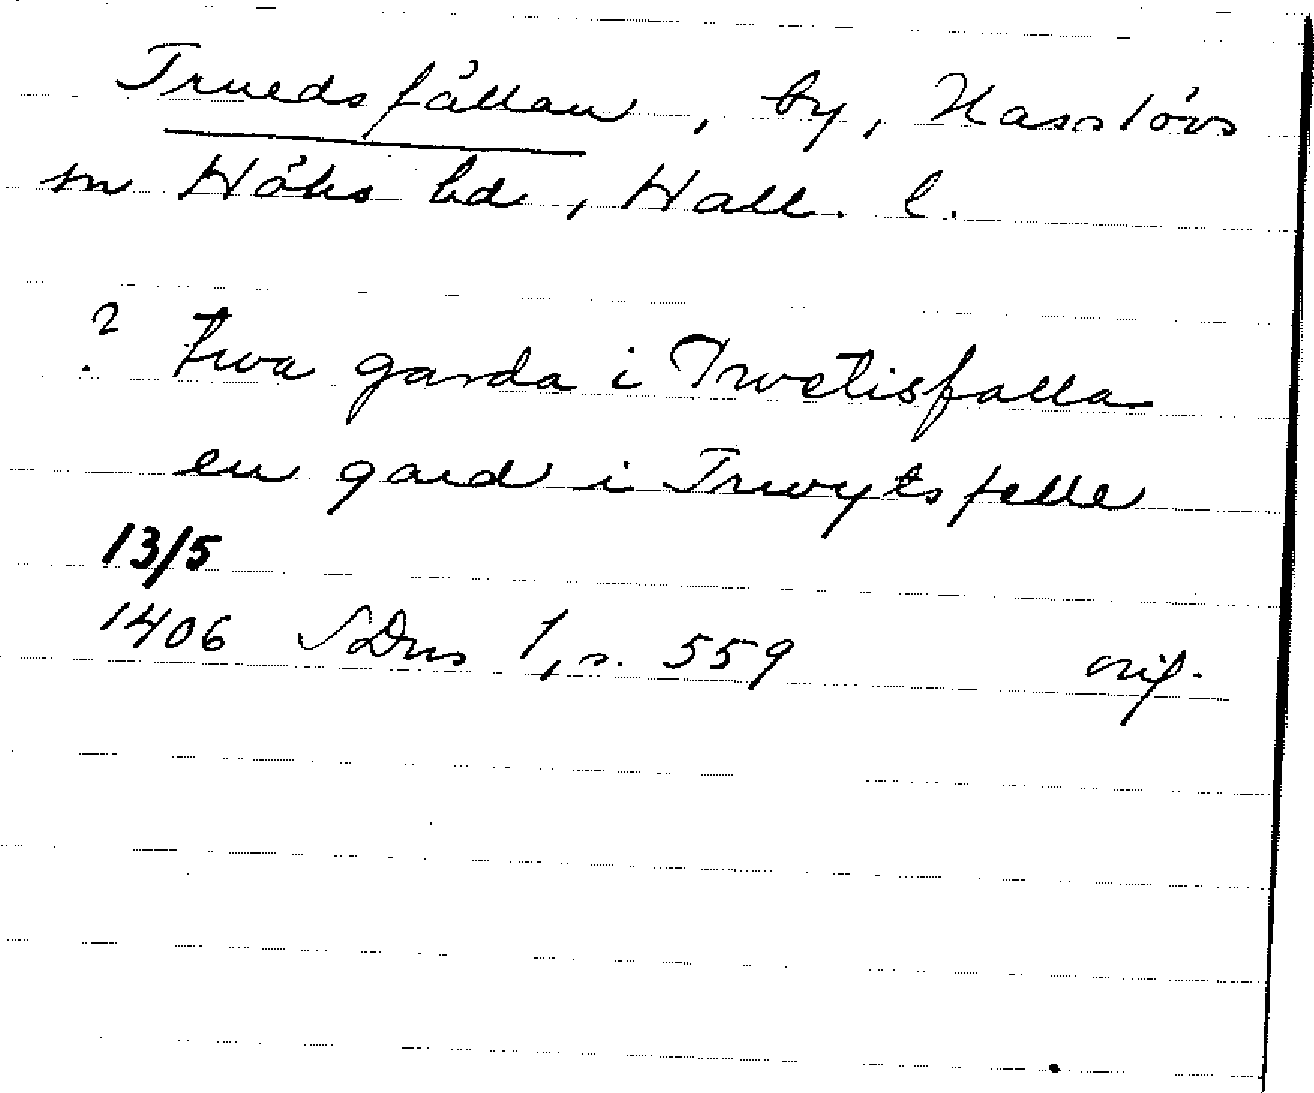 Truedsfällan, by, Hasslövs
sn Höks hd, Hall. l.
? twa garda i Trwetisfalla
en gard i Trwytsfelle
13/5
1406 SDns 1, s. 559 orig.